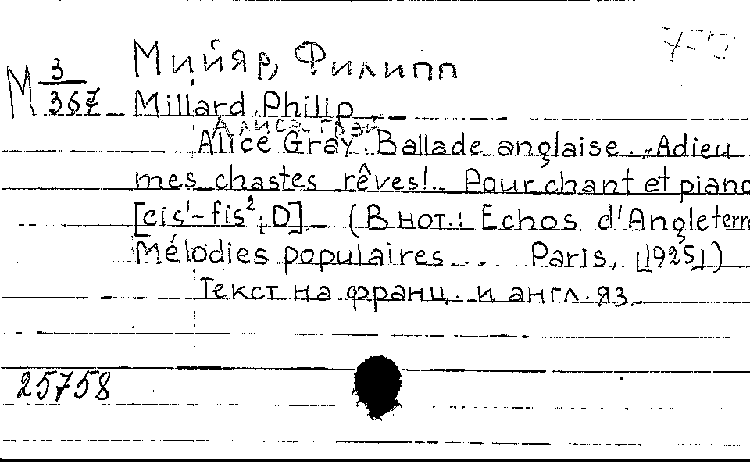 Мийяр, Филипп
М 3/367 Millard Philip
Алиса Грэй
Alice Gray. Ballade anglaise. „Adieu
mes chastes rêves!.. Pour chant et piano
[cis¹-fis²; D] (В нот.: Echos d'Angleterr
Mélodies populaires... Paris, [1925])
Текст на франц. и англ. яз.
25758